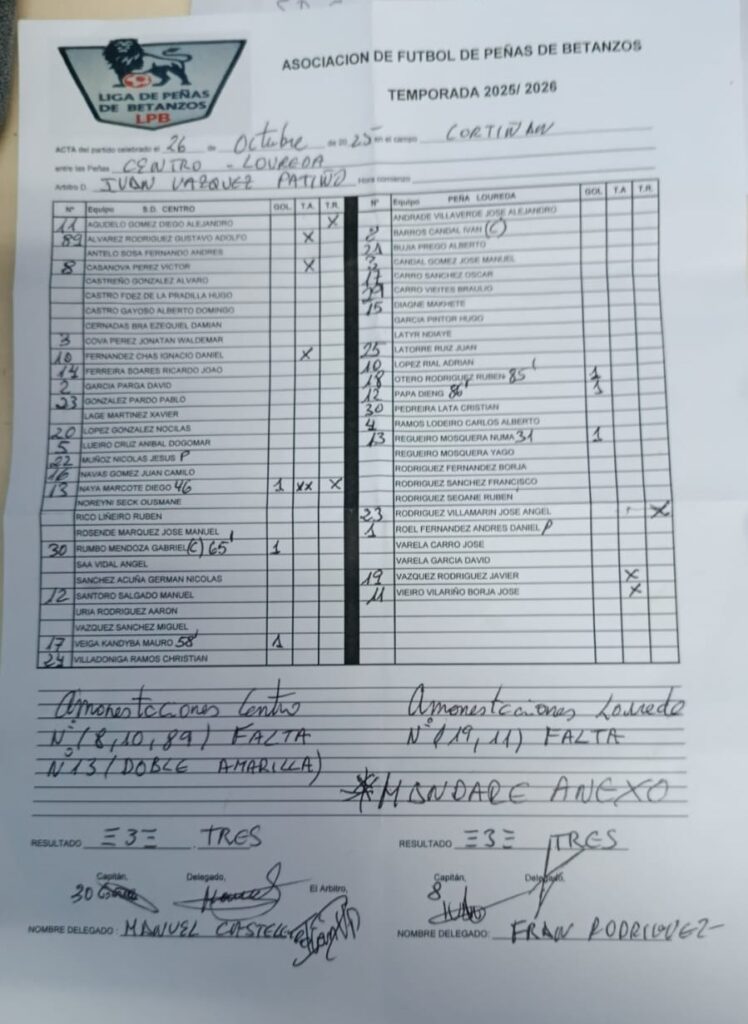 LIGA DE PEÑAS
DE BETANZOS
LPB
ASOCIACION DE FUTBOL DE PEÑAS DE BETANZOS
TEMPORADA 2025/ 2026
ACTA del partido celebrado el 26 de Octubre de 2025 en el campo CORTIÑAN
entre las Peñas CENTRO - LOUREDA
Arbitro D. IVAN VAZQUEZ PATIÑO Hora comienzo
Nº Equipo S.D. CENTRO GOL T.A. T.R.
11 AGUDELO GOMEZ DIEGO ALEJANDRO X
89 ALVAREZ RODRIGUEZ GUSTAVO ADOLFO X
ANTELO SOSA FERNANDO ANDRES
8 CASANOVA PEREZ VICTOR X
CASTREÑO GONZALEZ ALVARO
CASTRO FDEZ DE LA PRADILLA HUGO
CASTRO GAYOSO ALBERTO DOMINGO
CERNADAS BRA EZEQUIEL DAMIAN
3 COVA PEREZ JONATAN WALDEMAR
10 FERNANDEZ CHAS IGNACIO DANIEL X
14 FERREIRA SOARES RICARDO JOAO
2 GARCIA PARGA DAVID
23 GONZALEZ PARDO PABLO
LAGE MARTINEZ XAVIER
20 LOPEZ GONZALEZ NOCILAS
5 LUEIRO CRUZ ANIBAL DOGOMAR
22 MUÑOZ NICOLAS JESUS P
16 NAVAS GOMEZ JUAN CAMILO
13 NAYA MARCOTE DIEGO 46 1 XX X
NOREYNI SECK OUSMANE
RICO LIÑEIRO RUBEN
ROSENDE MARQUEZ JOSE MANUEL
30 RUMBO MENDOZA GABRIEL (C) 65' 1
SAA VIDAL ANGEL
SANCHEZ ACUÑA GERMAN NICOLAS
12 SANTORO SALGADO MANUEL
URIA RODRIGUEZ AARON
VAZQUEZ SANCHEZ MIGUEL
17 VEIGA KANDYBA MAURO 58' 1
24 VILLADONIGA RAMOS CHRISTIAN
Nº Equipo PEÑA LOUREDA GOL T.A T.R.
ANDRADE VILLAVERDE JOSE ALEJANDRO
2 BARROS CANDAL IVAN (C)
21 BUJIA PREGO ALBERTO
3 CANDAL GOMEZ JOSE MANUEL
17 CARRO SANCHEZ OSCAR
29 CARRO VIEITES BRAULIO
15 DIAGNE MAKHETE
GARCIA PINTOR HUGO
LATYR NDIAYE
25 LATORRE RUIZ JUAN
10 LOPEZ RIAL ADRIAN
18 OTERO RODRIGUEZ RUBEN 85' 1
12 PAPA DIENG 86' 1
30 PEDREIRA LATA CRISTIAN
4 RAMOS LODEIRO CARLOS ALBERTO
13 REGUEIRO MOSQUERA NUMA 31 1
REGUEIRO MOSQUERA YAGO
RODRIGUEZ FERNANDEZ BORJA
RODRIGUEZ SANCHEZ FRANCISCO
RODRIGUEZ SEOANE RUBEN
23 RODRIGUEZ VILLAMARIN JOSE ANGEL X
1 ROEL FERNANDEZ ANDRES DANIEL P
VARELA CARRO JOSE
VARELA GARCIA DAVID
19 VAZQUEZ RODRIGUEZ JAVIER X
11 VIEIRO VILARIÑO BORJA JOSE X
Amonestaciones Centro
Nº (8,10,89) FALTA
Nº13 (DOBLE AMARILLA)
Amonestaciones Loureda
Nº (19,11) FALTA
*MANDARE ANEXO
RESULTADO 3 TRES
RESULTADO 3 TRES
Capitán, Delegado, El Arbitro,
30
Capitán, Delegado,
8
NOMBRE DELEGADO: MANUEL
NOMBRE DELEGADO: FRAN RODRIGUEZ